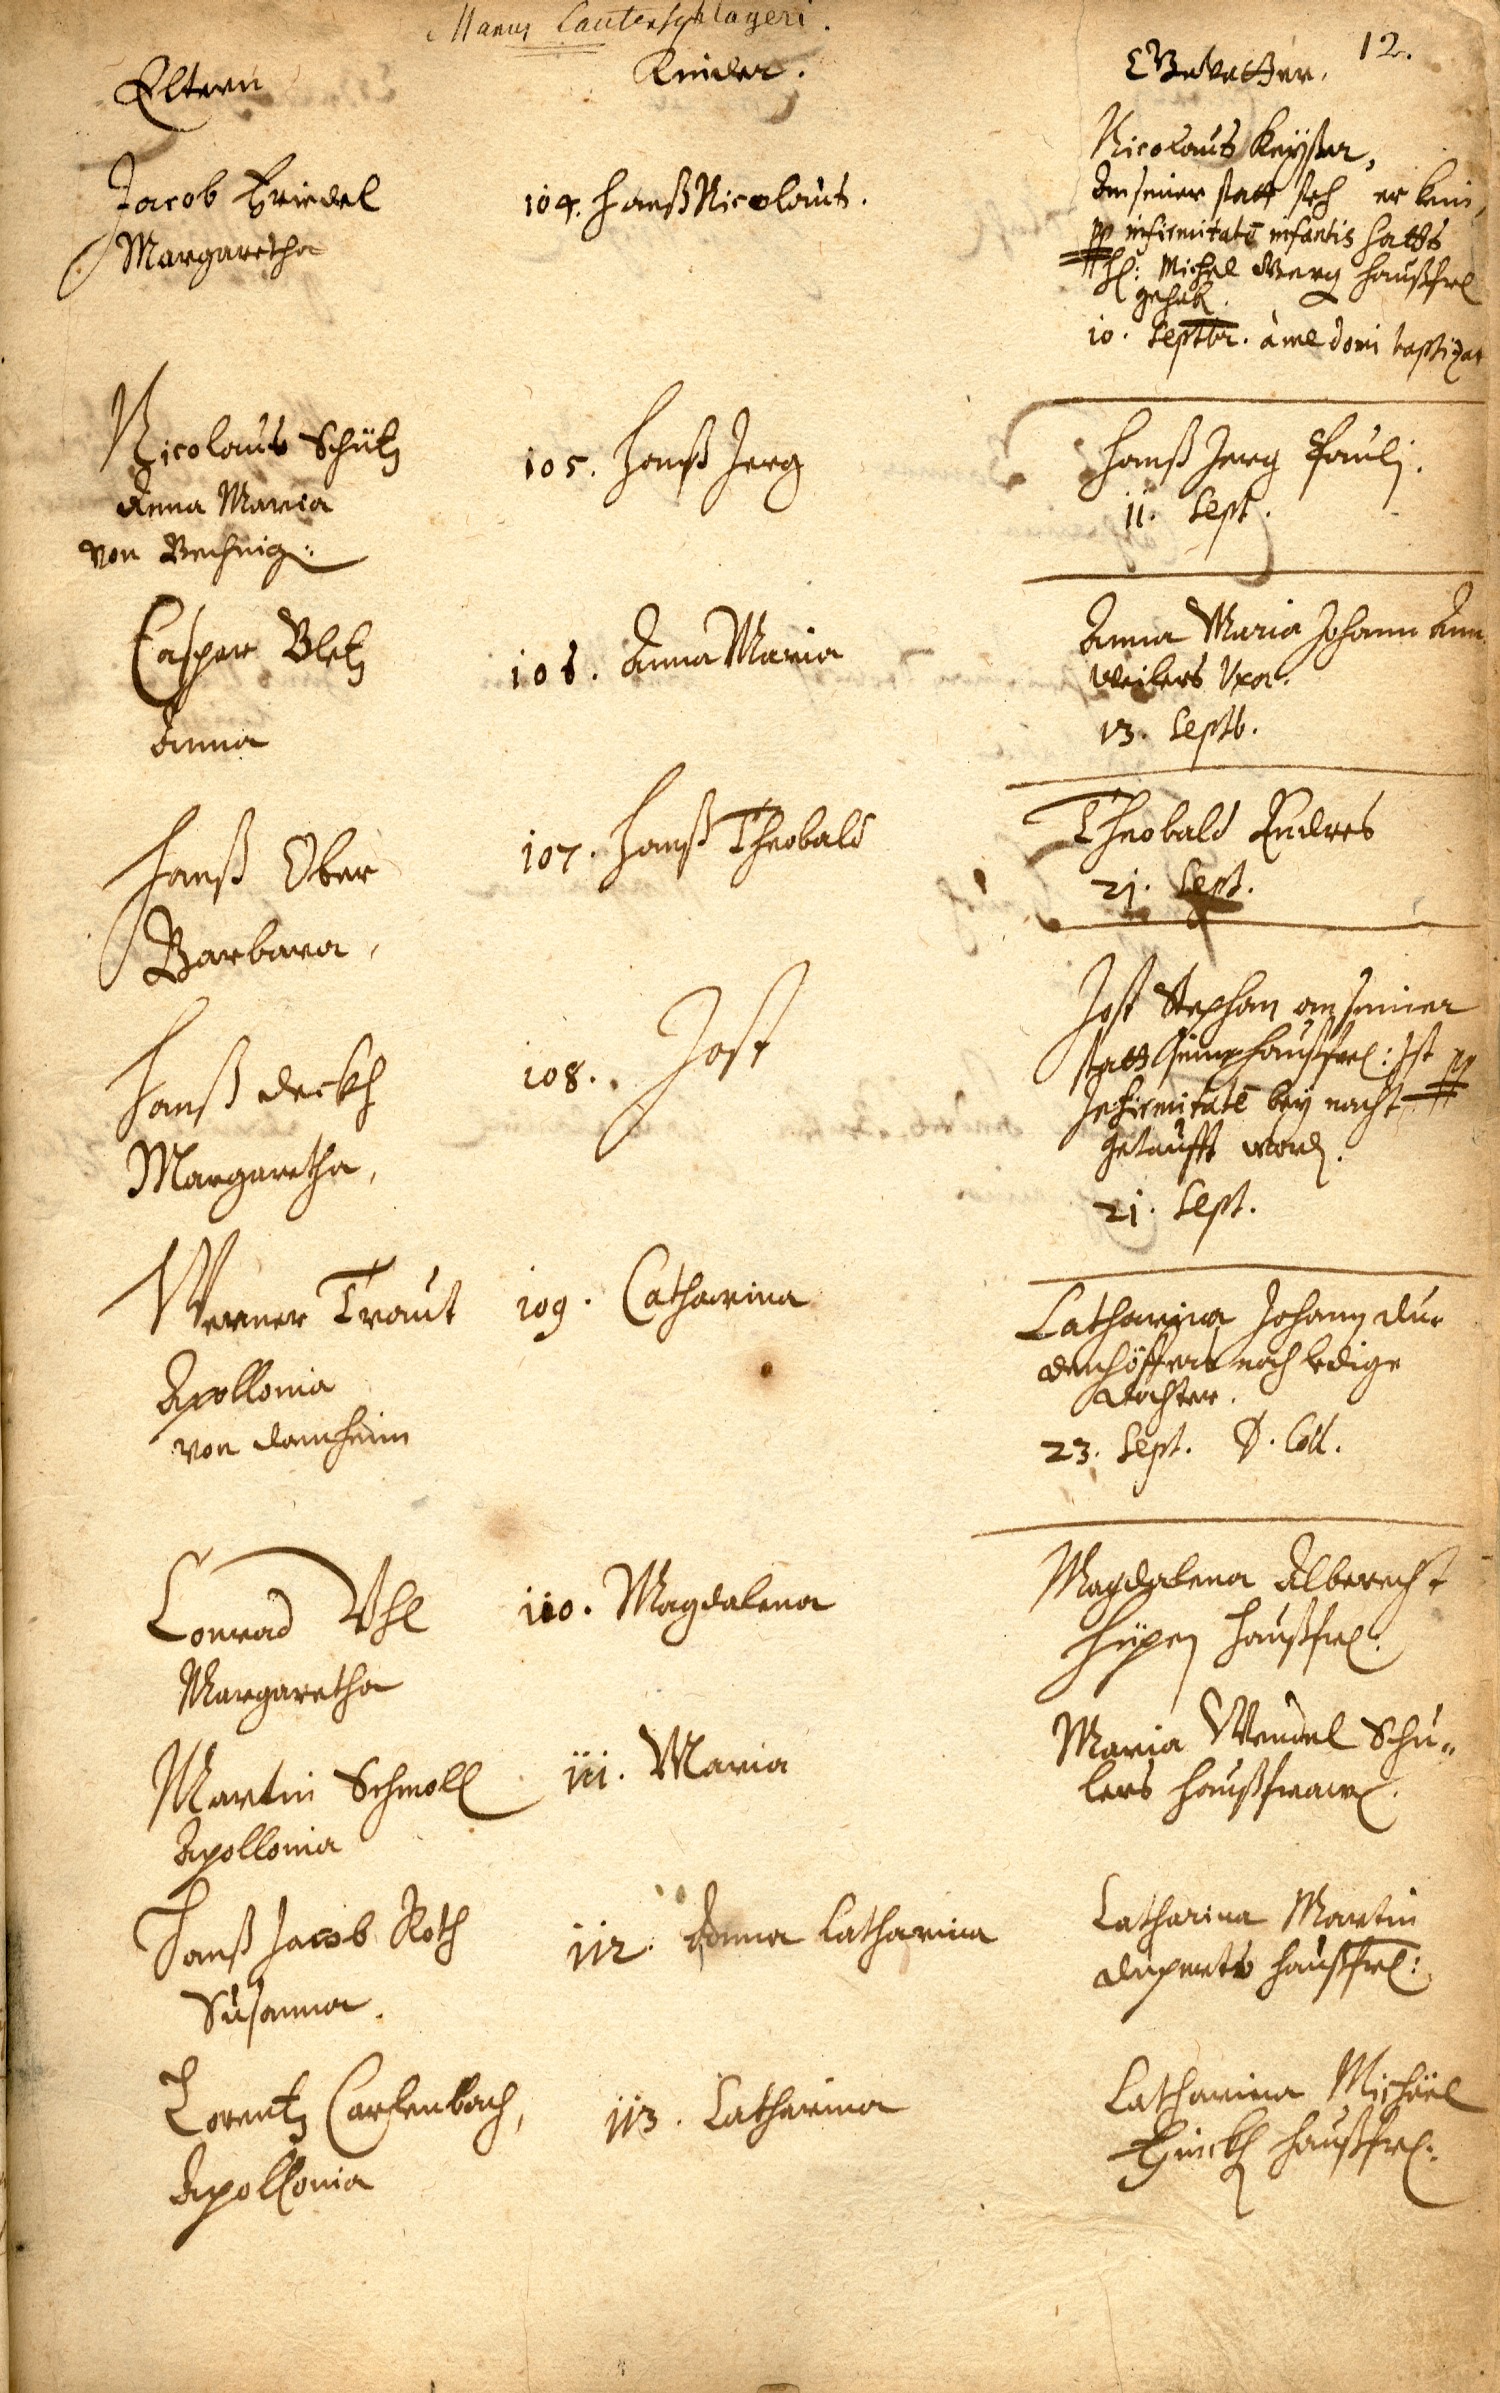 Manus Lautenschlageri.
12.
Eltern
Kinder.
Gevatter.
Jacob Friedel
Margaretha
104. Hanß Nicolaus.
Nicolaus Keyser,
An seiner statt
pp infirmitatē infantis hatts
H: Michel Berg haußfr
gehab.
10. Septbr. a me domi baptizat
Nicolaus Schütz
Anna Maria
von
105. Hanß Jerg
Hanß Jerg Pauli.
11. Sept.
Caspar Bletz
Anna
106. Anna Maria
Anna Maria Johann Ann
weilers Vxor.
13. Septb.
Hanß Ober
Barbara,
107. Hanß Theobald
Theobald Endres
21. Sept.
Hanß Deckh
Margaretha,
108. Jost
Jost Stephan an seiner
statt haußfr: Ist pp
Infirmitatē bey nacht
getaufft word.
21. Sept.
Werner Traut
Apollonia
von Damheim
109. Catharina
Catharina Johann Du-
denhöffers noch ledige
dochter.
23. Sept. D. Coll.
Conrad Vhl
Margaretha
110. Magdalena
Magdalena Alberecht
haußfr.
Martin Schmoll
Apollonia
111. Maria
Maria Wendel Schu-
lers haußfraw.
Hanß Jacob Roth
Susanna.
112. Anna Catharina
Catharina Martin
haußfr:
Lorentz Carsenbach,
Apollonia
113. Catharina
Catharina Michäel
Finckh haußfr.